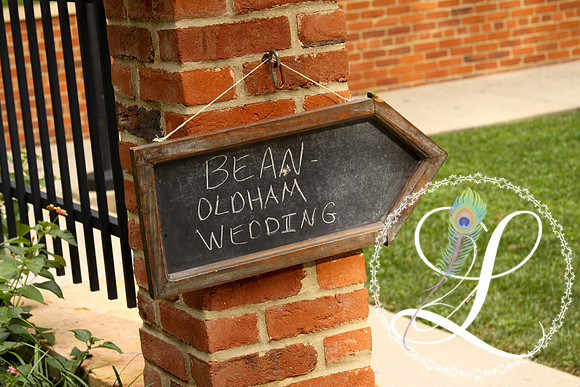 BEAN-
OLDHAM
WEDDING
L